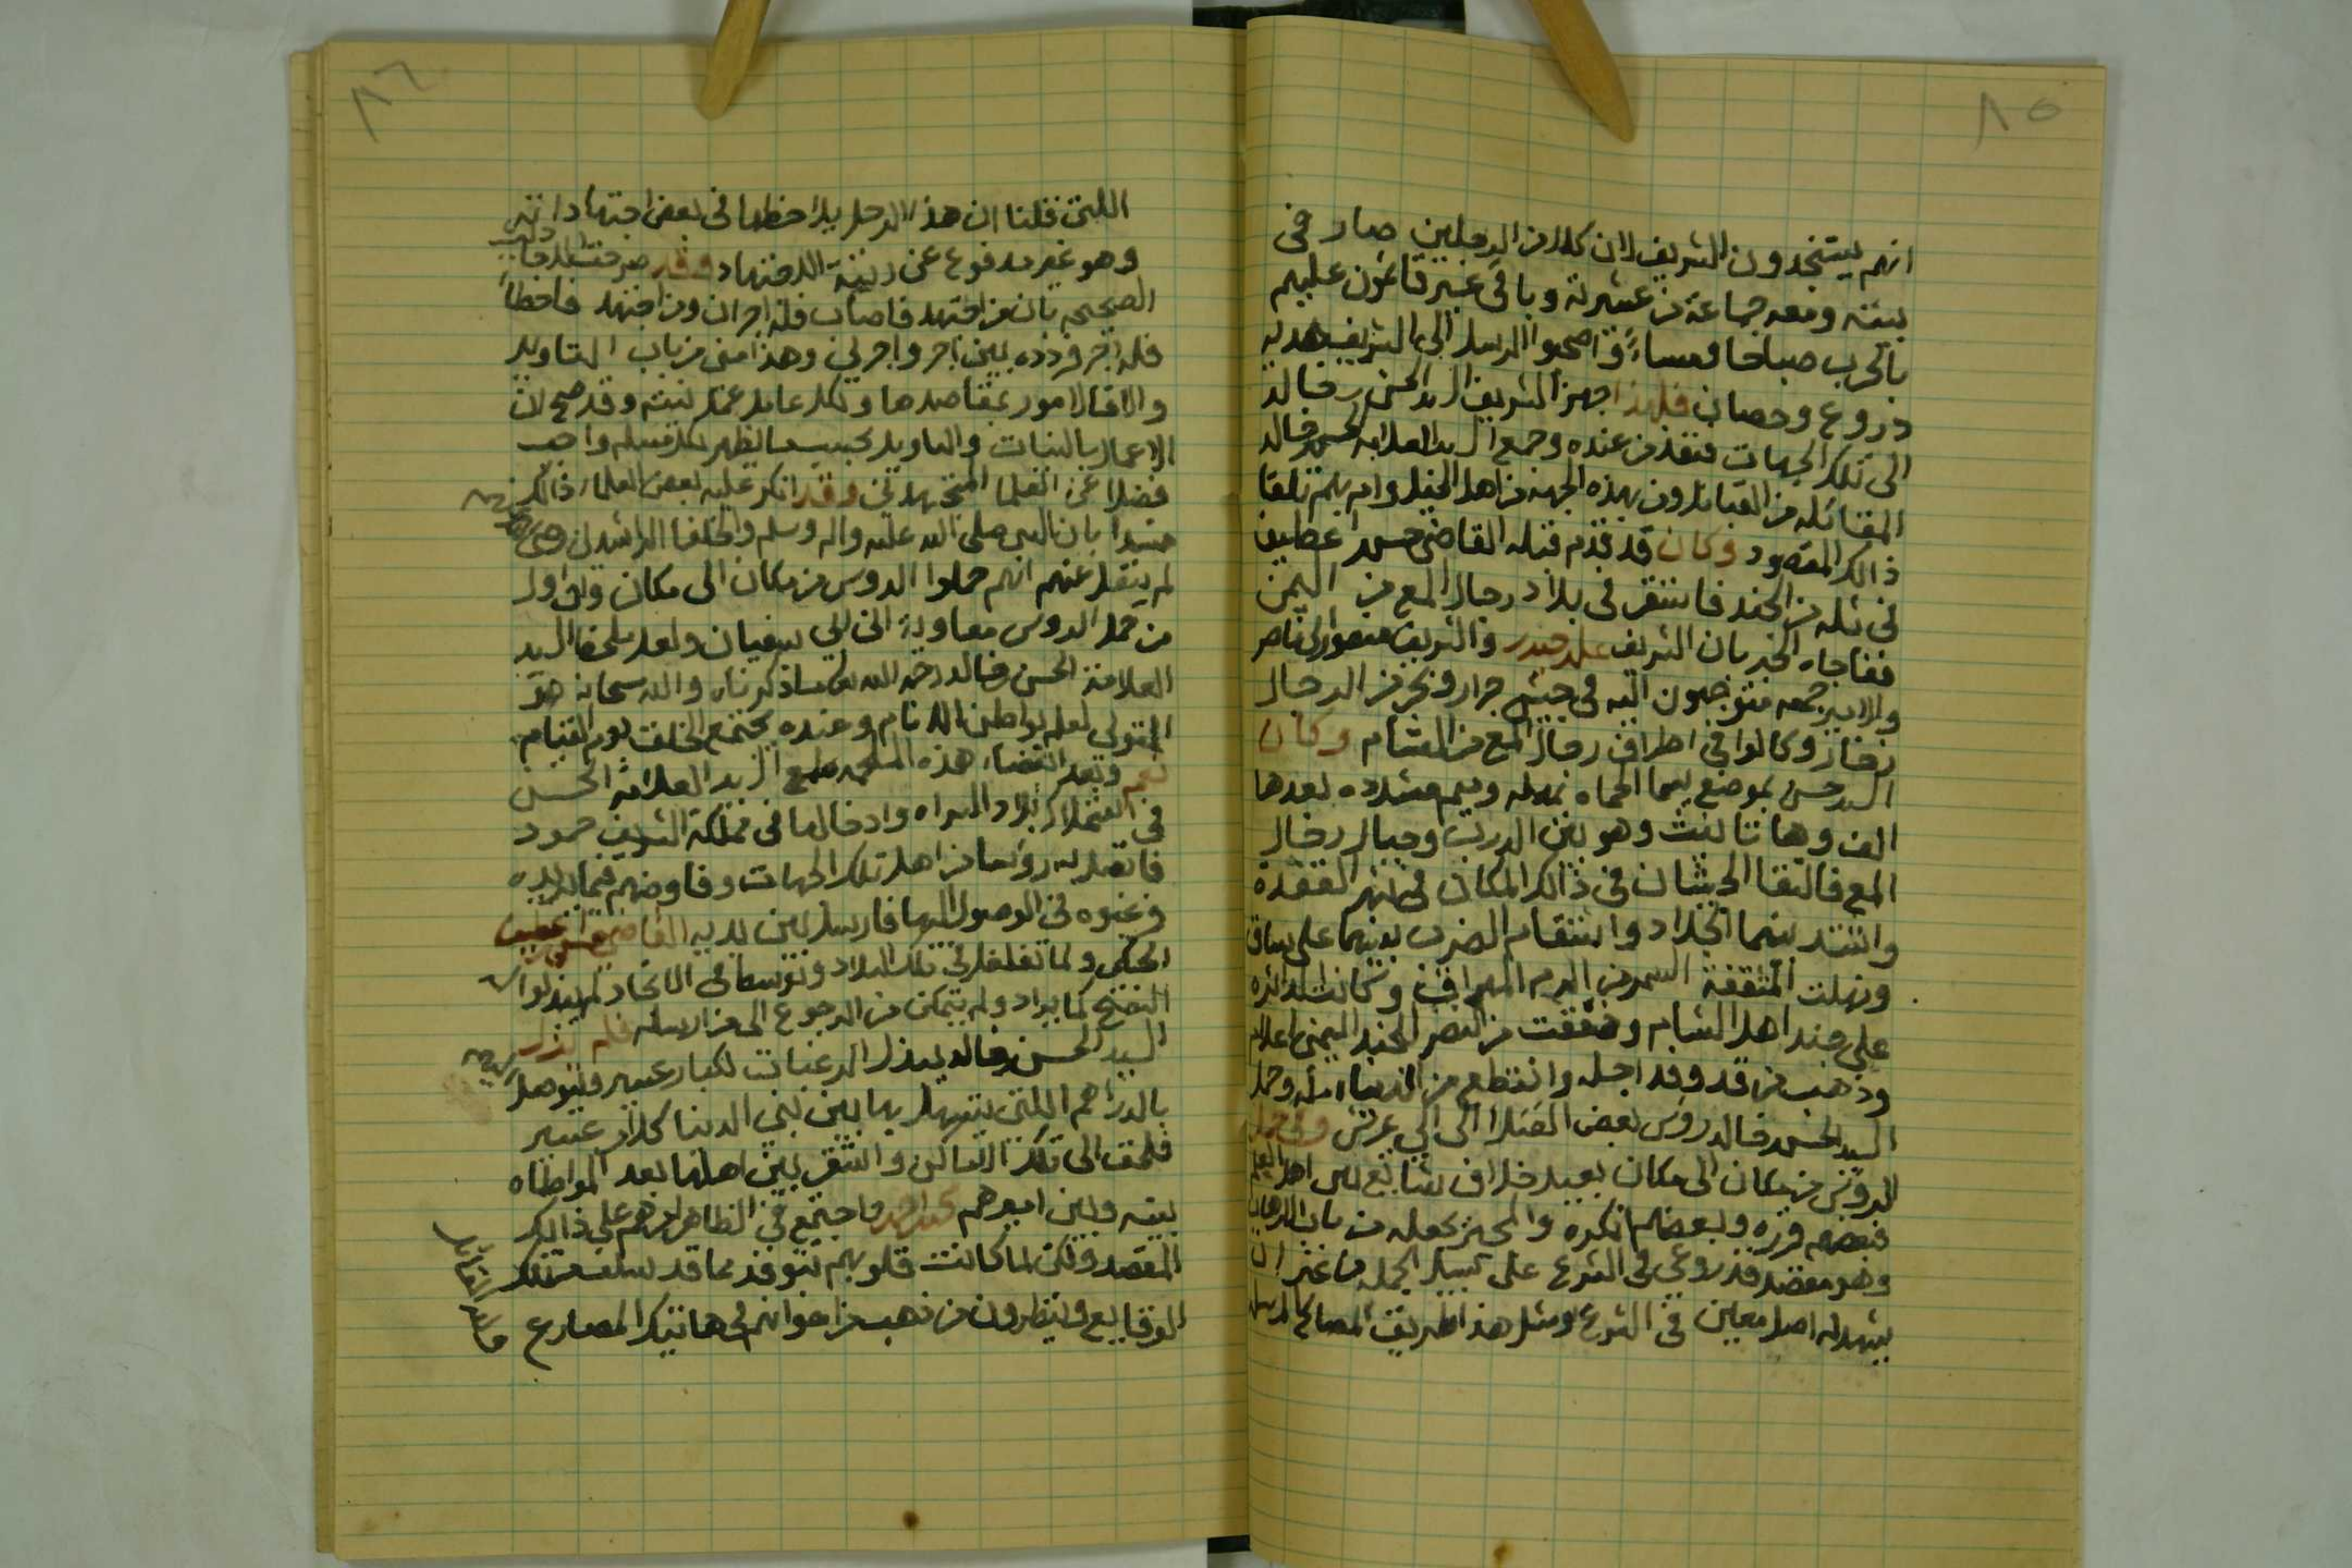 ٨٥
انهم يستنجدون الشريف لان كلا من الرجلين صار في
بيته ومعه جماعة من عشيرته وباقي عسير قائمون عليهم
بالحرب صباحا ومساءً واصحوا الرسل الى الشريف هديه
دروع وحصان فلهذا جهز الشريف السيد الحسن بن خالد
الى تلك الجهات فنفذ من عنده وجمع السيد العلامه الحسن بن خالد
المقاتله من القبائل ومن بهذه الجهه من اهل الخيل وام بهم تلقا
ذالك المقصود وكان قد تقدم قبله القاضي حسن بن عطيف
في ثله من الجند فاستقر في بلاد رجال المع من اليمن
ففاجاه الخبر بان الشريف علي حيدر والشريف منصور بن ناصر
والامير جمعه متوجهون اليه في جيش جرار ونحر من الرجال
زخار وكانوا في اطراف رجال المع من الشام وكان
السيد حسن بموضع يسما الحماه بمهمله وميم مشدده بعدها
الف وها تانيث وهو بين الدرب وجبال رجال
المع فالتقا الجيشان في ذالك المكان في شهر القعده
واشتد بينهما الجلاد واستقام الضرب بينهما على ساق
ونهلت المثقفة السمر من الدم المهراق وكانت الدائره
على جند اهل الشام وخفقت من النصر للجند اليمني اعلام
وذهب من قد وفد اجله وانقطع من الدنيا امله وحمل
السيد الحسن بن خالد روس بعض القتلا الى ابي عريش وفي حمل
الروس من مكان الى مكان بعيد خلاف شائع بين اهل العلم
فبعضهم قرره وبعضهم انكره والمجيز يجعله من باب الارهاب
وهو مقصد قد روعي في الشرع على سبيل الجمله من غير ان
يشهد له اصل معين في الشرع ومثل هذا طريقة المصالح المرسله
٨٦
اللتي قلنا ان هذا الرجل يلاحظها في بعض اجتهاداته
وهو غير مدفوع عن رتبة الاجتهاد وقد صرحت الاحاديث
الصحيحه بان من اجتهد فاصاب فله اجران ومن اجتهد فاخطأ
فله اجر فرده بين اجر واجرين وهذا مني من باب التاويل
والا فالامور بمقاصدها ولكل عامل عمل نيته وقد صح ان
الاعمال بالنيات والتاويل بحسب ما يظهر لكل مسلم واجب
فضلا عن العلما المجتهدين وقد انكر عليه بعض العلماء ذالك
مستدا بان النبي صلى الله عليه واله وسلم والخلفا الراشدين رضي الله عنهم
لم ينقل عنهم انهم حملوا الروس من مكان الى مكان وان اول
من حمل الروس معاوية ابن ابي سفيان ولعل ملحظ السيد
العلامة الحسن بن خالد رحمه الله تعالى ما ذكرناه والله سبحانه هو
المتولي لعلم بواطن الانام وعنده يجتمع الخلق يوم القيام
نعم وبعد انقضاء هذه الملحمه طمع السيد العلامة الحسن
في استملاك بلاد السراه وادخالها في مملكة الشريف حمود
فاتصل به رؤسا من اهل تلك الجهات وفاوضهم فيما يريده
ورغبوه في الوصول اليها فارسل بين يديه القاضي حسن بن عطيف
الحكمي ولما تغلغل في تلك البلاد وتوسط في الانجاد لم يبذلوا له
النصح كما يراد ولم يتمكن من الرجوع الى من ارسله فلم يزل
السيد الحسن بن خالد يبذل الرغبات لكبار عسير ويتوصل
بالدراهم اللتي يتسهل بها بين بني الدنيا كل امر عسير
فلحق الى تلك الاماكن واستقر بين اهلها بعد المواطاه
بينه وبين اميرهم محمد بن احمد واجتمع في الظاهر امرهم على ذالك
المقصد ولكن لما كانت قلوبهم تتوقد مما قد سلف من تلك
الوقايع وينظرون من ذهب من اخوانهم في هاتيك المصارع